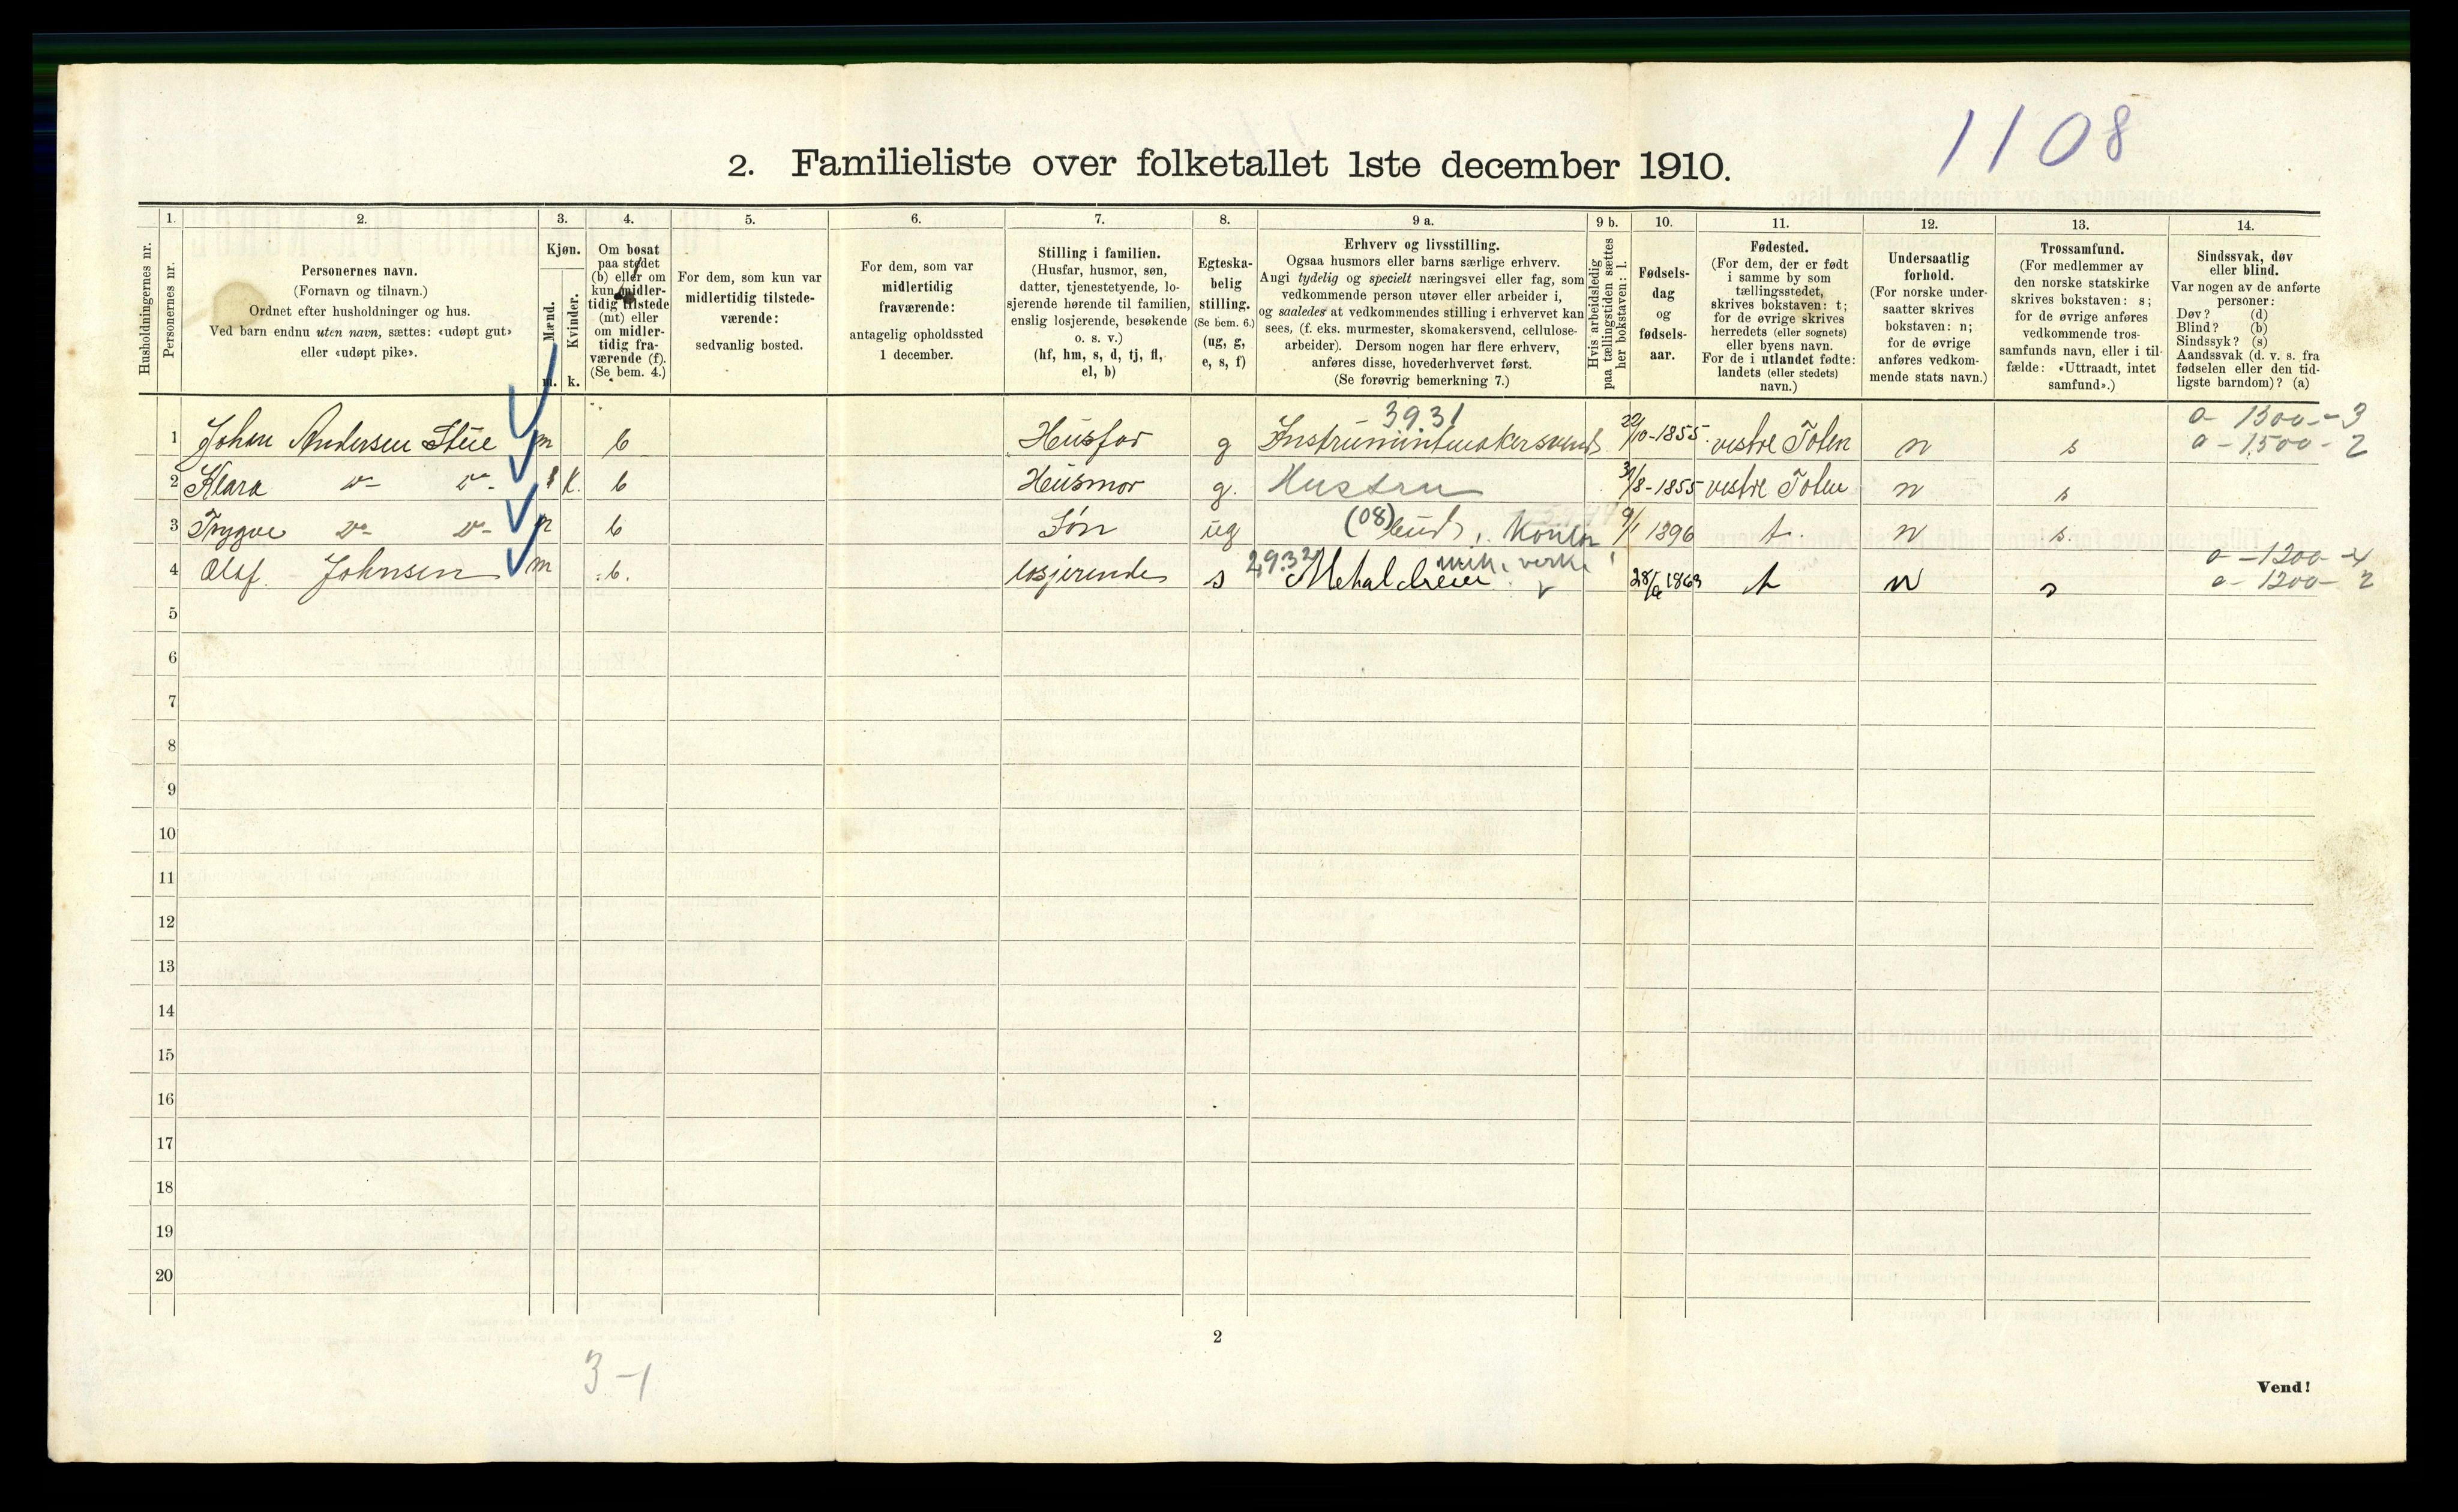 1108
2. Familieliste over folketallet 1ste december 1910.
Husholdningernes nr.
1.
Personernes nr.
2.
Personernes navn.
(Fornavn og tilnavn.)
Ordnet efter husholdninger og hus.
Ved barn endnu uten navn, sættes: «udøpt gut»
eller «udøpt pike».
3.
Kjøn.
Mænd.
Kvinder.
m. k.
4.
Om bosat
paa stedet
(b) eller om
kun midler-
tidig tilstede
(mt) eller
om midler-
tidig fra-
værende (f).
(Se bem. 4.)
5.
For dem, som kun var
midlertidig tilstede-
værende:
sedvanlig bosted.
6.
For dem, som var
midlertidig
fraværende:
antagelig opholdssted
1 december.
7.
Stilling i familien.
(Husfar, husmor, søn,
datter, tjenestetyende, lo-
sjerende hørende til familien,
enslig losjerende, besøkende
o. s. v.)
(hf, hm, s, d, tj, fl,
el, b)
8.
Egteska-
belig
stilling.
(Se bem. 6.)
(ug, g,
e, s, f)
9 a.
Erhverv og livsstilling.
Ogsaa husmors eller barns særlige erhverv.
Angi tydelig og specielt næringsvei eller fag, som
vedkommende person utøver eller arbeider i,
og saaledes at vedkommendes stilling i erhvervet kan
sees, (f. eks. murmester, skomakersvend, cellulose-
arbeider). Dersom nogen har flere erhverv,
anføres disse, hovederhvervet først.
(Se forøvrig bemerkning 7.)
9 b.
Hvis arbeidsledig
paa tællingstiden sættes
her bokstaven: l.
10.
Fødsels-
dag
og
fødsels-
aar.
11.
Fødested.
(For dem, der er født
i samme by som
tællingsstedet,
skrives bokstaven: t;
for de øvrige skrives
herredets (eller sognets)
eller byens navn.
For de i utlandet fødte:
landets (eller stedets)
navn.)
12.
Undersaatlig
forhold.
(For norske under-
saatter skrives
bokstaven: n;
for de øvrige
anføres vedkom-
mende stats navn.)
13.
Trossamfund.
(For medlemmer av
den norske statskirke
skrives bokstaven: s;
for de øvrige anføres
vedkommende tros-
samfunds navn, eller i til-
fælde: «Uttraadt, intet
samfund».)
14.
Sindssvak, døv
eller blind.
Var nogen av de anførte
personer:
Døv? (d)
Blind? (b)
Sindssyk? (s)
Aandssvak (d. v. s. fra
fødselen eller den tid-
ligste barndom)? (a)
3931 a- 1300 - 3
1 Johan Andersen Stüe m b Hüsfar g Instrümintmakersvend 22/10-1855 vestre Toten n s a - 1500 - 2
2 Klara do do k. b Hüsmor g. Hustru /8-1855 vestre Toten n s
3 Trygve do do m b Søn üg (08) büd, Kontor 9/1 1896 t. n s.
2932 mek. verks a - 1200 - 4
4 Olaf Johnsen m b. losjerende s Metaldreier 28/ 1863 t n s a - 1200 - 2
5
6
7
8
9
10
11
12
13
14
15
16
17
18
19
20
2
3-1
Vend!